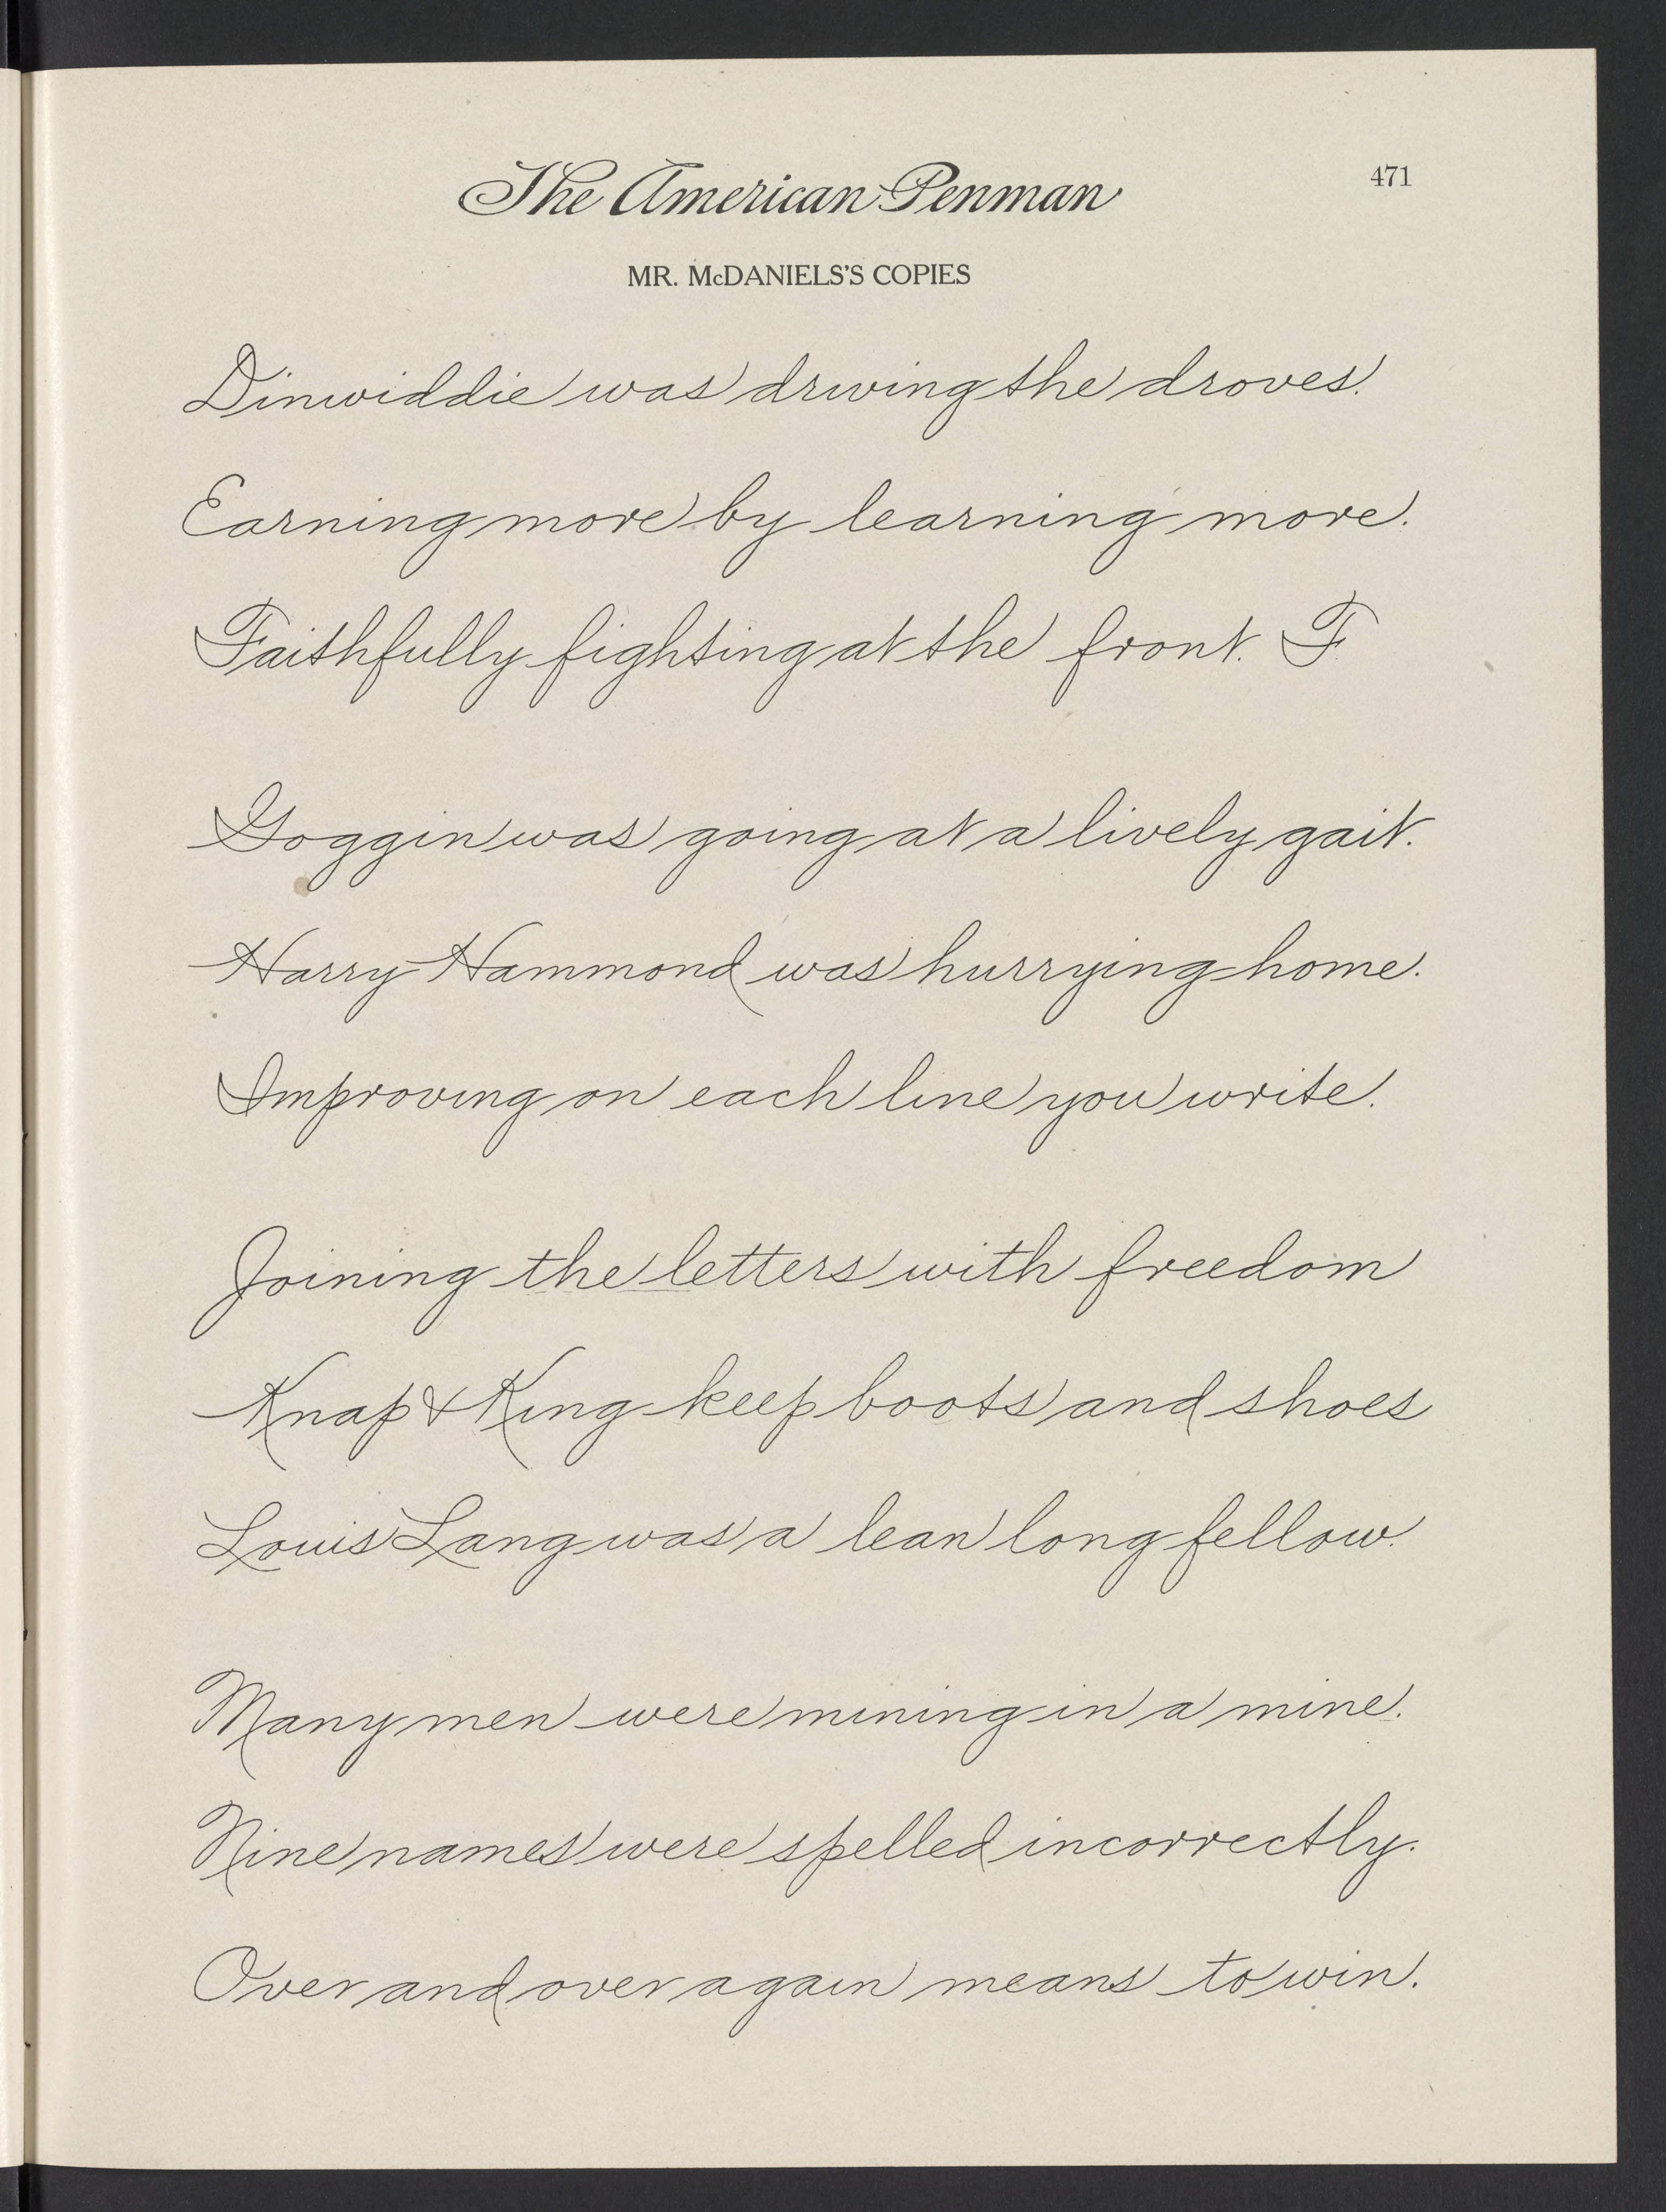 The American Penman
471
MR. McDANIELS'S COPIES
Dinwiddie was driving the droves.
Earning more by learning more.
Faithfully fighting at the front. F
Goggin was going at a lively gait.
Harry Hammond was hurrying home.
Improving on each line you write.
Joining the letters with freedom
Knap & King keep boots and shoes
Louis Lang was a lean long fellow.
Many men were mining in a mine.
Nine names were spelled incorrectly.
Over and over again means to win.